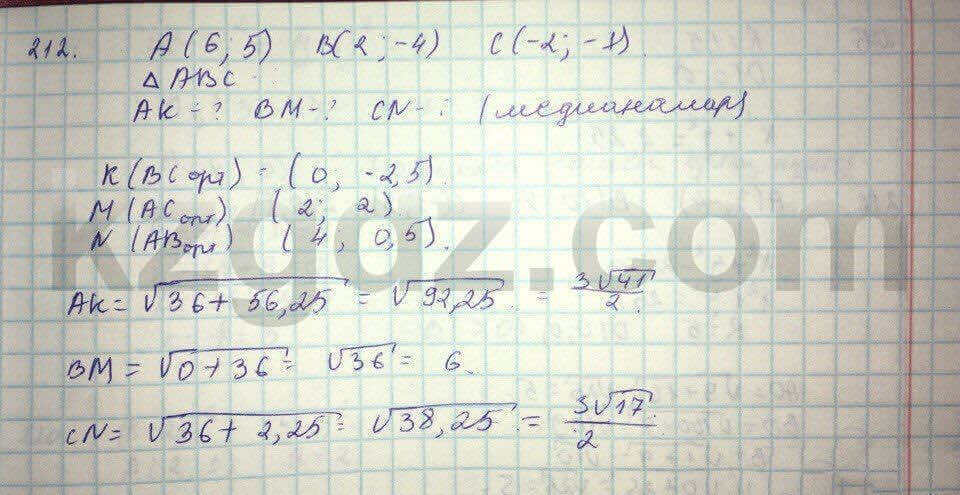 212. A(6; 5) B(2; -4) C(-2; -1).
△ABC
AK - ? BM - ? CN - ? (медианалар)
K(BC орт) - (0; -2,5).
M(AC орт) (2; 2).
N(AB орт) (4, 0,5).
AK = √36 + 56,25 = √92,25 = 3√41/2.
BM = √0 + 36 = √36 = 6.
CN = √36 + 2,25 = √38,25 = 3√17/2.
kzgdz.com